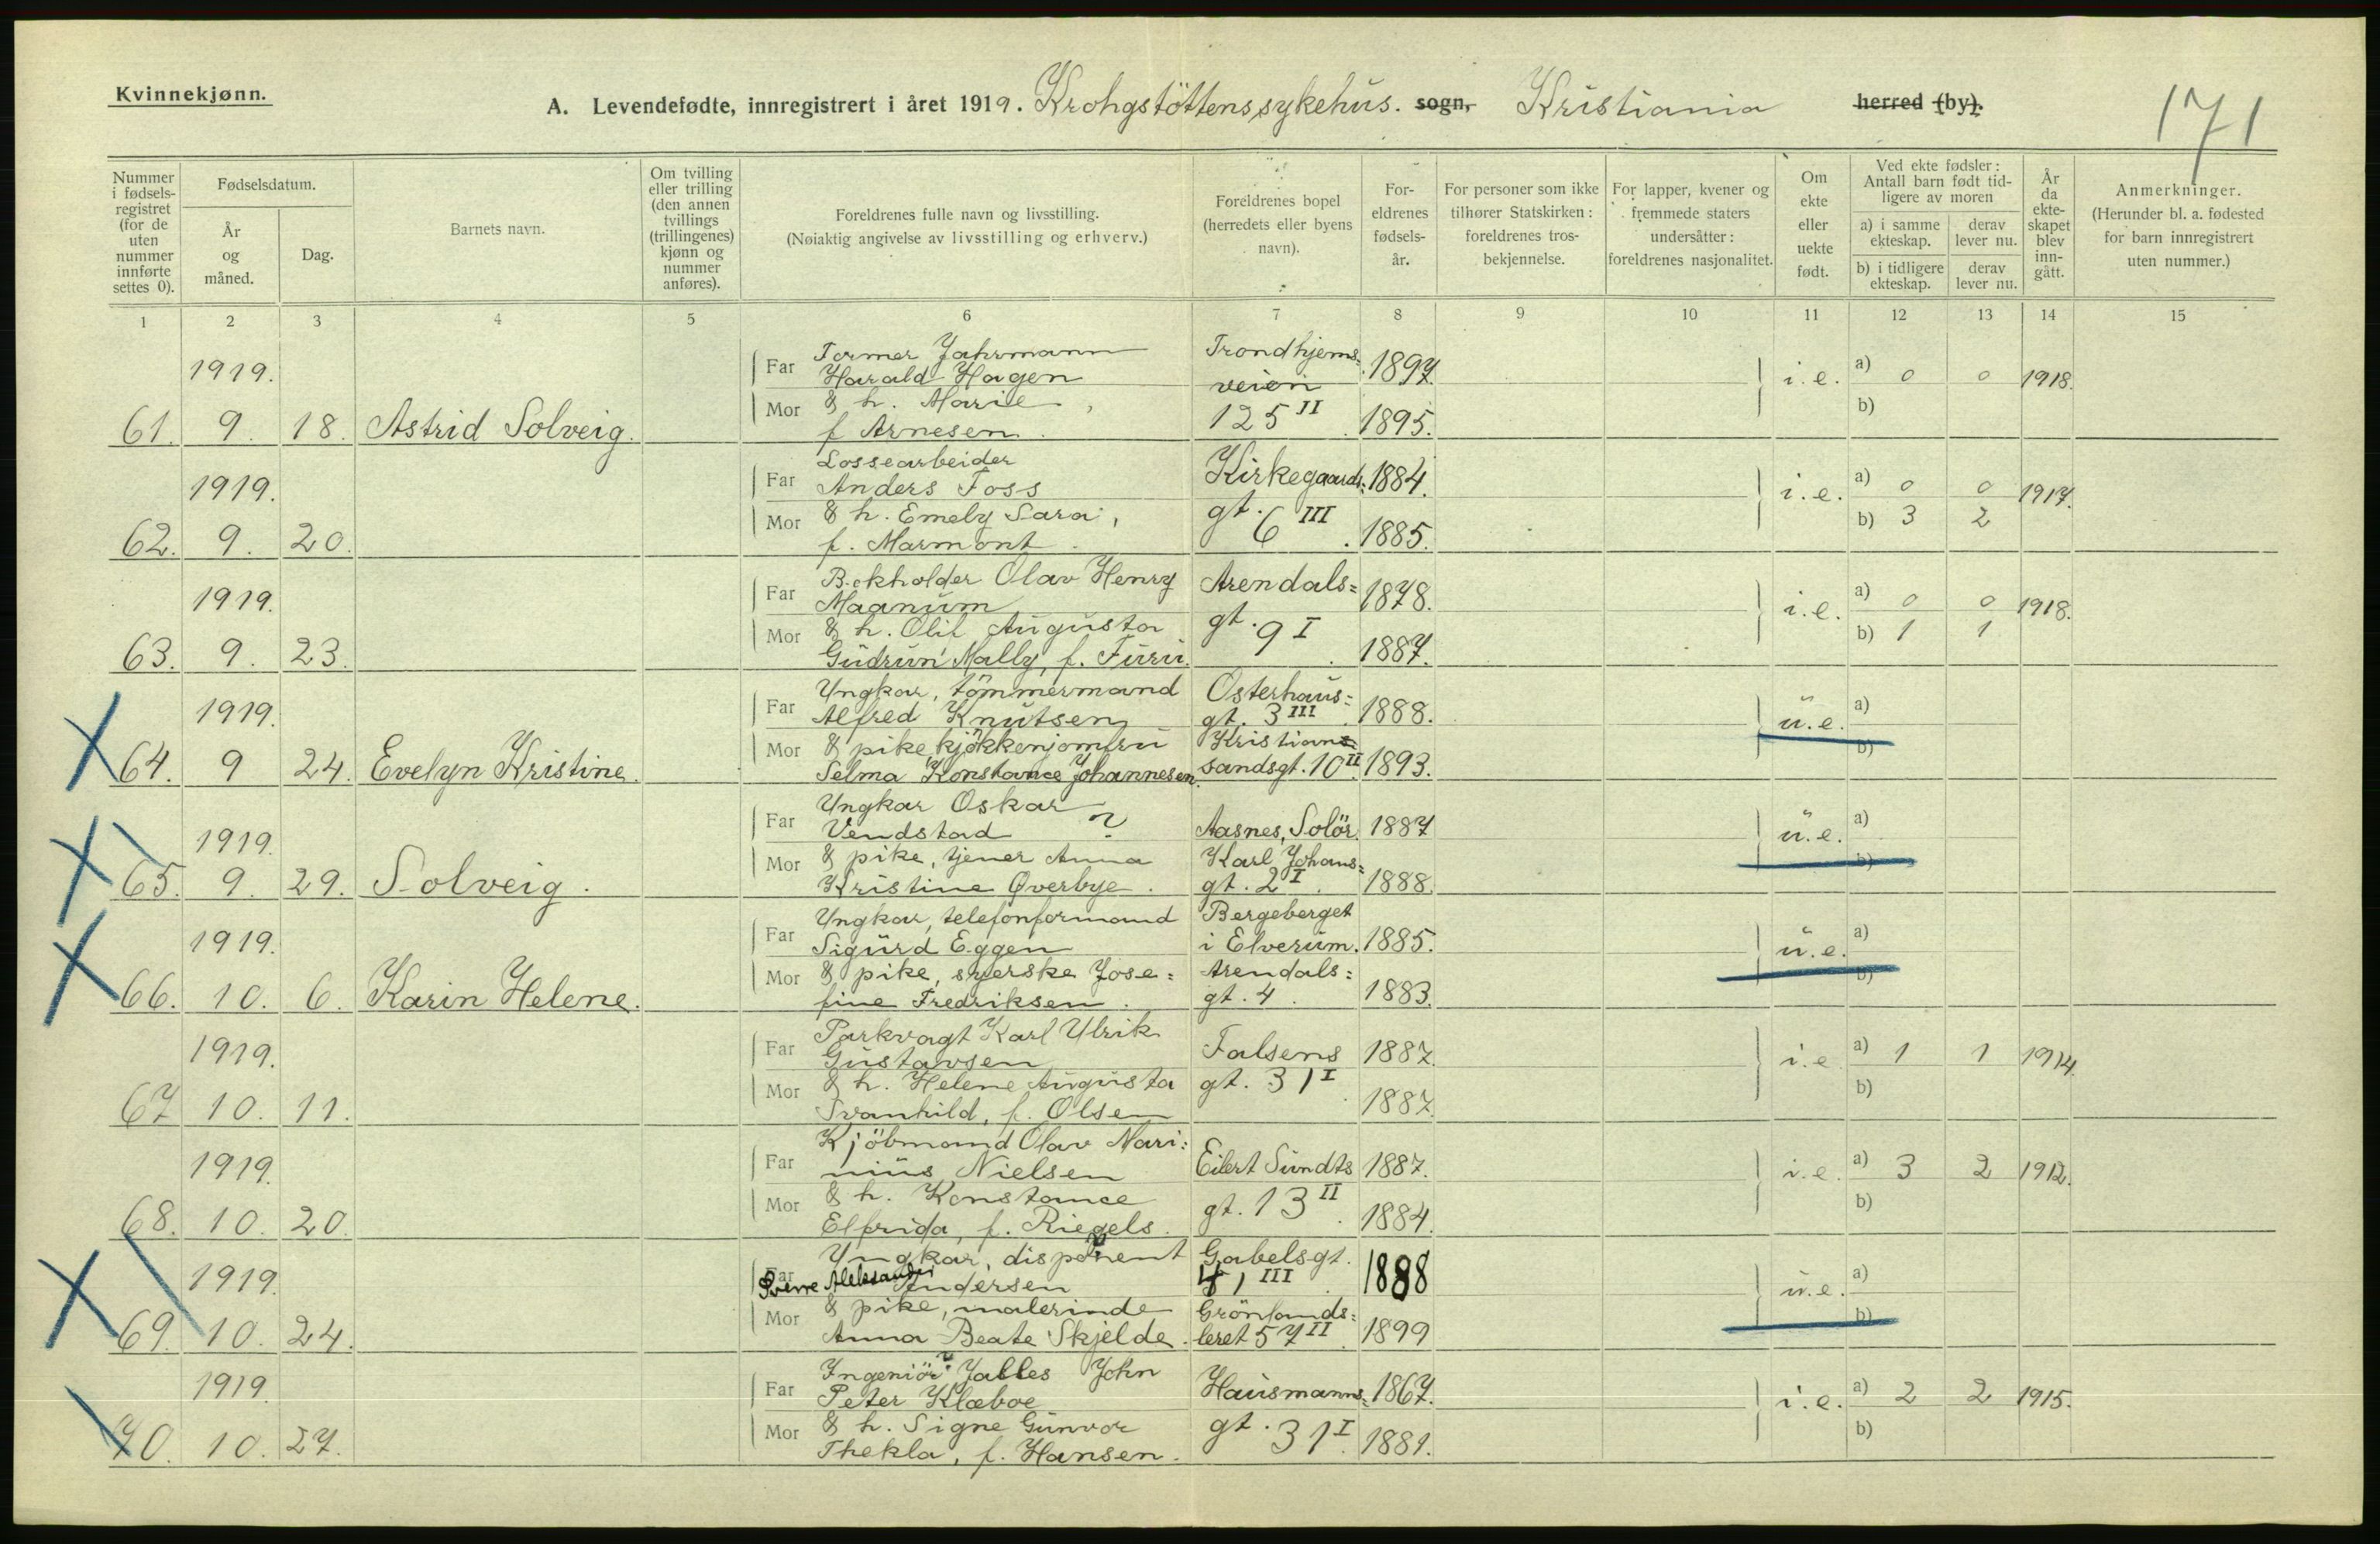 Kvinnekjønn.
A. Levendefødte, innregistrert i året 1919. Krohgstöttens sykehus. sogn, Kristiania herred (by).
171
Nummer i fødsels-registret (for de uten nummer innførte settes 0).
Fødselsdatum.
År og måned.
Dag.
Barnets navn.
Om tvilling eller trilling (den annen tvillings (trillingenes) kjønn og nummer anføres).
Foreldrenes fulle navn og livsstilling.
(Nøiaktig angivelse av livsstilling og erhverv.)
Foreldrenes bopel (herredets eller byens navn).
For-eldrenes fødsels-år.
For personer som ikke tilhører Statskirken: foreldrenes tros-bekjennelse.
For lapper, kvener og fremmede staters undersåtter: foreldrenes nasjonalitet.
Om ekte eller uekte født.
Ved ekte fødsler: Antall barn født tid-ligere av moren
a) i samme ekteskap.
derav lever nu.
b) i tidligere ekteskap.
derav lever nu.
År da ekte-skapet blev inn-gått.
Anmerkninger.
(Herunder bl. a. fødested for barn innregistrert uten nummer.)
1 2 3 4 5 6 7 8 9 10 11 12 13 14 15
1919.
Far Former Jahrmann Trondhjems-
Harald Hagen veien 1897. i.e. a) 0 0 1918.
Mor & h. Marie, 125 II b)
61. 9. 18. Astrid Solveig. f Arnesen. 1895.
Lossearbeider Kirkegaards-
1919. Far Anders Foss 1884. i.e. a) 0 0 1917.
Mor & h. Emely Sara, gt. 6 III b) 3 2
62. 9. 20. f. Marmont. 1885.
Far B.ekholder Olav Henry Arendals=
1919. Maanum 1878. i.e. a) 0 0 1918.
Mor & h. Olif Augusta gt. 9 I b) 1 1
63. 9. 23. Gudrun Mally, f. Furu. 1887.
Ungkar, tömmermand Osterhaus=
1919. Far Alfred Knutsen gt. 3 III 1888. u.e. a)
Mor & pike kjökkenjomfru Kristian= b)
64. 9 24. Evelyn Kristine. Selma Konstance Johannesen. sandsgt. 10 II. 1893.
Ungkar Oskar ?
1919. Far Vendstad Aasnes, Solör. 1887 u.e. a)
Mor & pike, tjener Anna Karl Johans= b)
65. 9. 29. Solveig. Kristine Øverbye. gt. 2 I. 1888.
Ungkar, telefonformand Bergeberget
1919. Far Sigurd Eggen i Elverum. 1885. u.e. a)
Mor & pike, syerske Jose= Arendals= b)
66. 10. 6. Karin Helene. fine Fredriksen. gt. 4. 1883.
Parkvagt Karl Ulrik
1919. Far Gustavsen Falsens 1887. i.e. a) 1 1 1914.
Mor & h. Helene Augusta gt. 31 I b)
67 10. 11. Svanhild, f. Olsen 1887.
Kjöbmand Olav Mari=
1919. Far nius Nielsen Eilert Sundts 1887. i.e. a) 3 2 1912.
Mor & h. Konstance gt. 13 II b)
68. 10. 20. Elfrida, f. Riegels. 1884.
Ungkar, disponent Gabelsgt.
1919. Far Sverre Aleksander Andersen 41 III 1888 u.e. a)
Mor & pike, malerinde Grönlands= b)
69. 10. 24. Anna Beate Skjelde. leret 57 II. 1899
Ingeniör Jalles John
1919. Far Peter Klæboe Hausmanns= 1867. i.e. a) 2 2 1915.
Mor & h. Signe Gunvor gt. 31 I. b)
70. 10. 27. Thekla, f. Hansen. 1881.